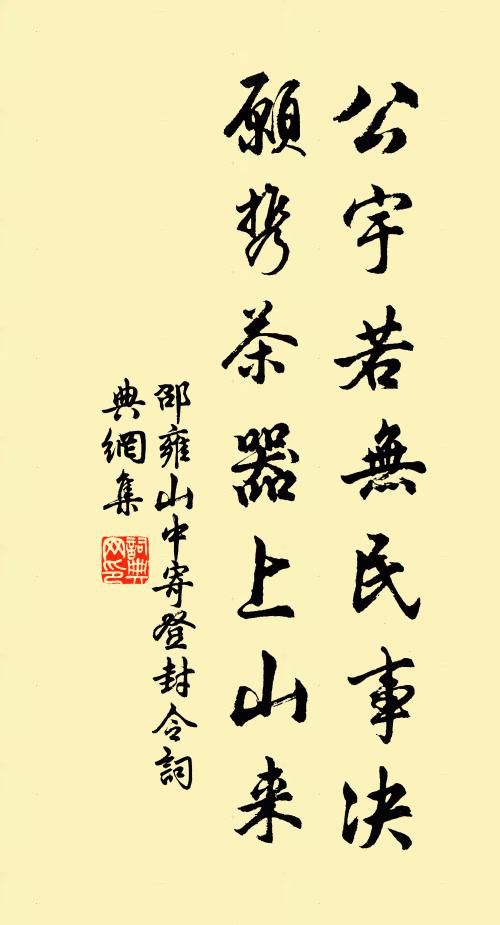 公宇若無民事决
願携茶器上山来
邵雍山中寄登封令詞
典網集
詞典网印